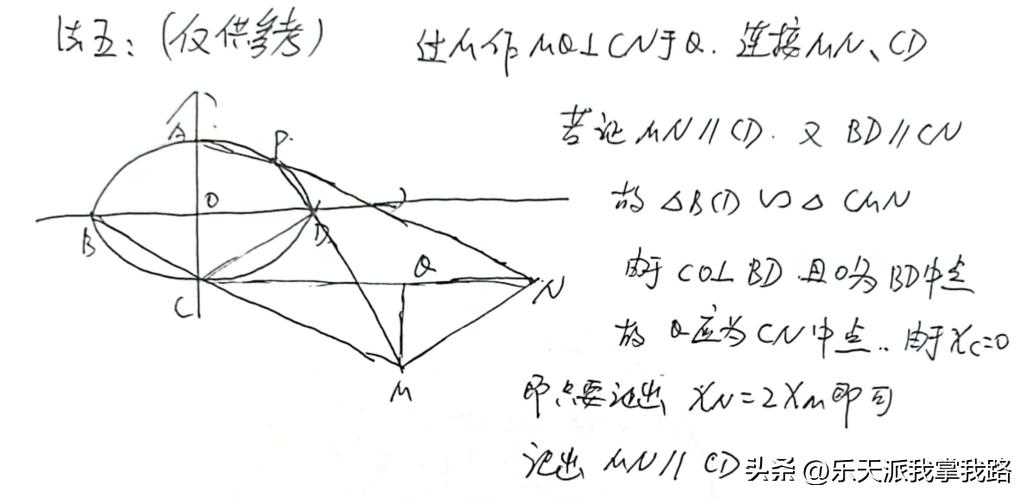 法五：（仅供参考）
过M作MQ⊥CN于Q. 连接MN、CD
若证MN∥CD. 又 BD∥CN
故 △BCD ∽ △ CMN
由于 CO⊥BD 且O为BD中点
故 Q应为CN中点.. 由于 Xc=0
即只要证出 XN=2XM即可
证出 MN∥CD
A
P
O
B
D
Q
C
N
M
头条 @乐天派我掌我路